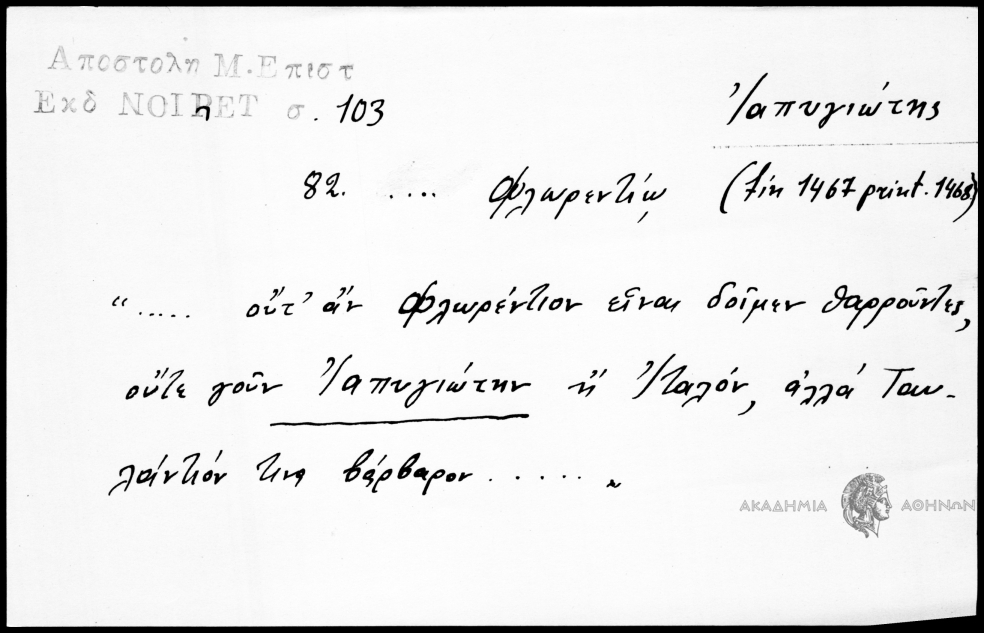 Αποστολη Μ. Επιστ
Εκδ NOIRET σ. 103
Ἰαπυγιώτης
82. .... Φλωρεντίῳ (fin 1467 print. 1468)
"..... οὔτ' ἄν Φλωρέντιον εἶναι δοῖμεν θαρροῦντες,
οὔτε γοῦν Ἰαπυγιώτην ἤ Ἰταλόν, ἀλλά Ταυ-
λάντιόν τινα βάρβαρον ...... "
ΑΚΑΔΗΜΙΑ ΑΘΗΝΩΝ